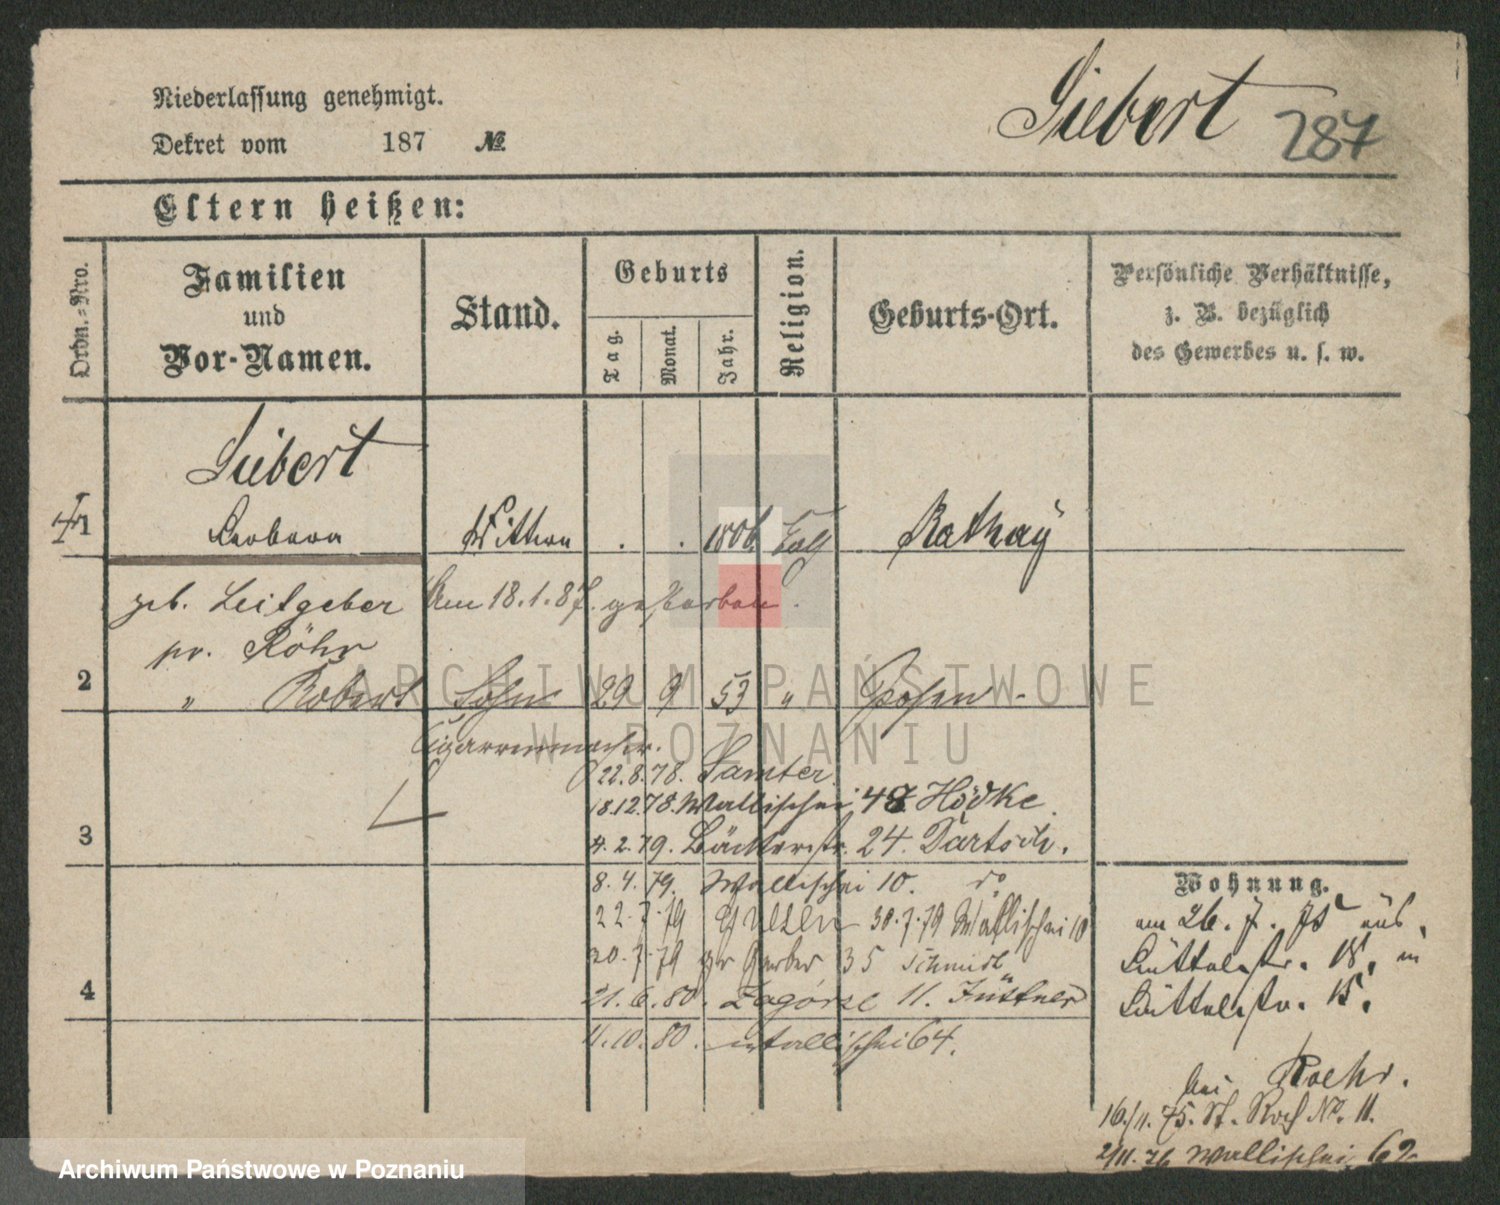 Niederlassung genehmigt.
Dekret vom 187 №
Siebert 287
Eltern heißen:
Ordn.-Nro.
Familien
und
Vor-Namen.
Stand.
Geburts
Tag.
Monat.
Jahr.
Religion.
Geburts-Ort.
Persönliche Verhältnisse,
z. B. bezüglich
des Gewerbes u. s. w.
Siebert
1 Barbara Wittwe . . 1806 kath Rathay
geb. Leitgeber Am 18.1.87. gestorben.
pr. Röhr
2 " Robert Sohn 29 9 53 " Posen -
Cigarrenmacher.
22.8.78. Samter.
18.12.78. Wallischei 48 Hödke.
3 4.2.79. Bäckerstr. 24. Dartsch.
8.4.79. Wallischei 10. do
22.7.79 Gnesen 30.7.79 Wallischei 10
20.7.79 gr Gerber 35 Schmidt
4 21.6.80. Zagórze 11. Jüttner
11.10.80. Wallischei 64.
Wohnung.
am 26. 7. 75 aus
Büttelstr. 18. in
Büttelstr. 15.
bei Roehr.
16/11. 75. St. Roch No. 11.
2/11. 76 Wallischei 62
ARCHIWUM PAŃSTWOWE
W POZNANIU
Archiwum Państwowe w Poznaniu